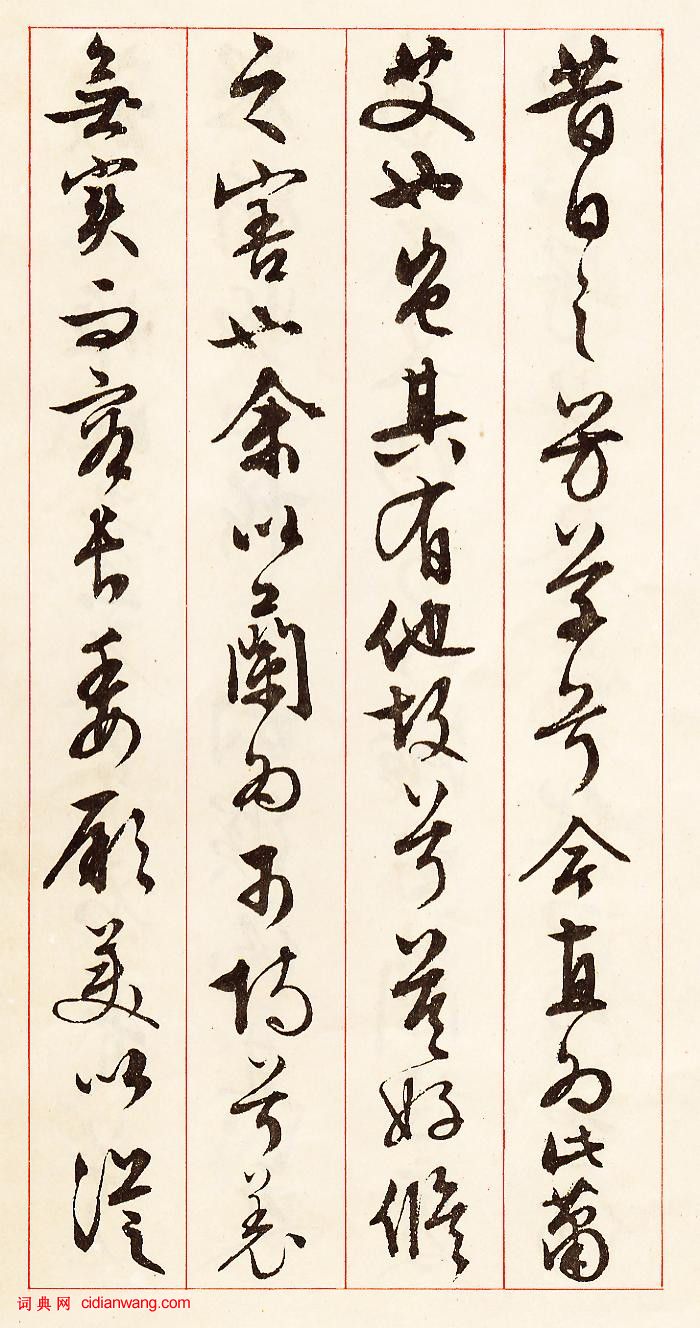 昔日之芳草兮今直為此蕭
艾也豈其有他故兮莫好脩
之害也余以蘭為可恃兮羌
無實而容長委厥美以從
词典网 cidianwang.com